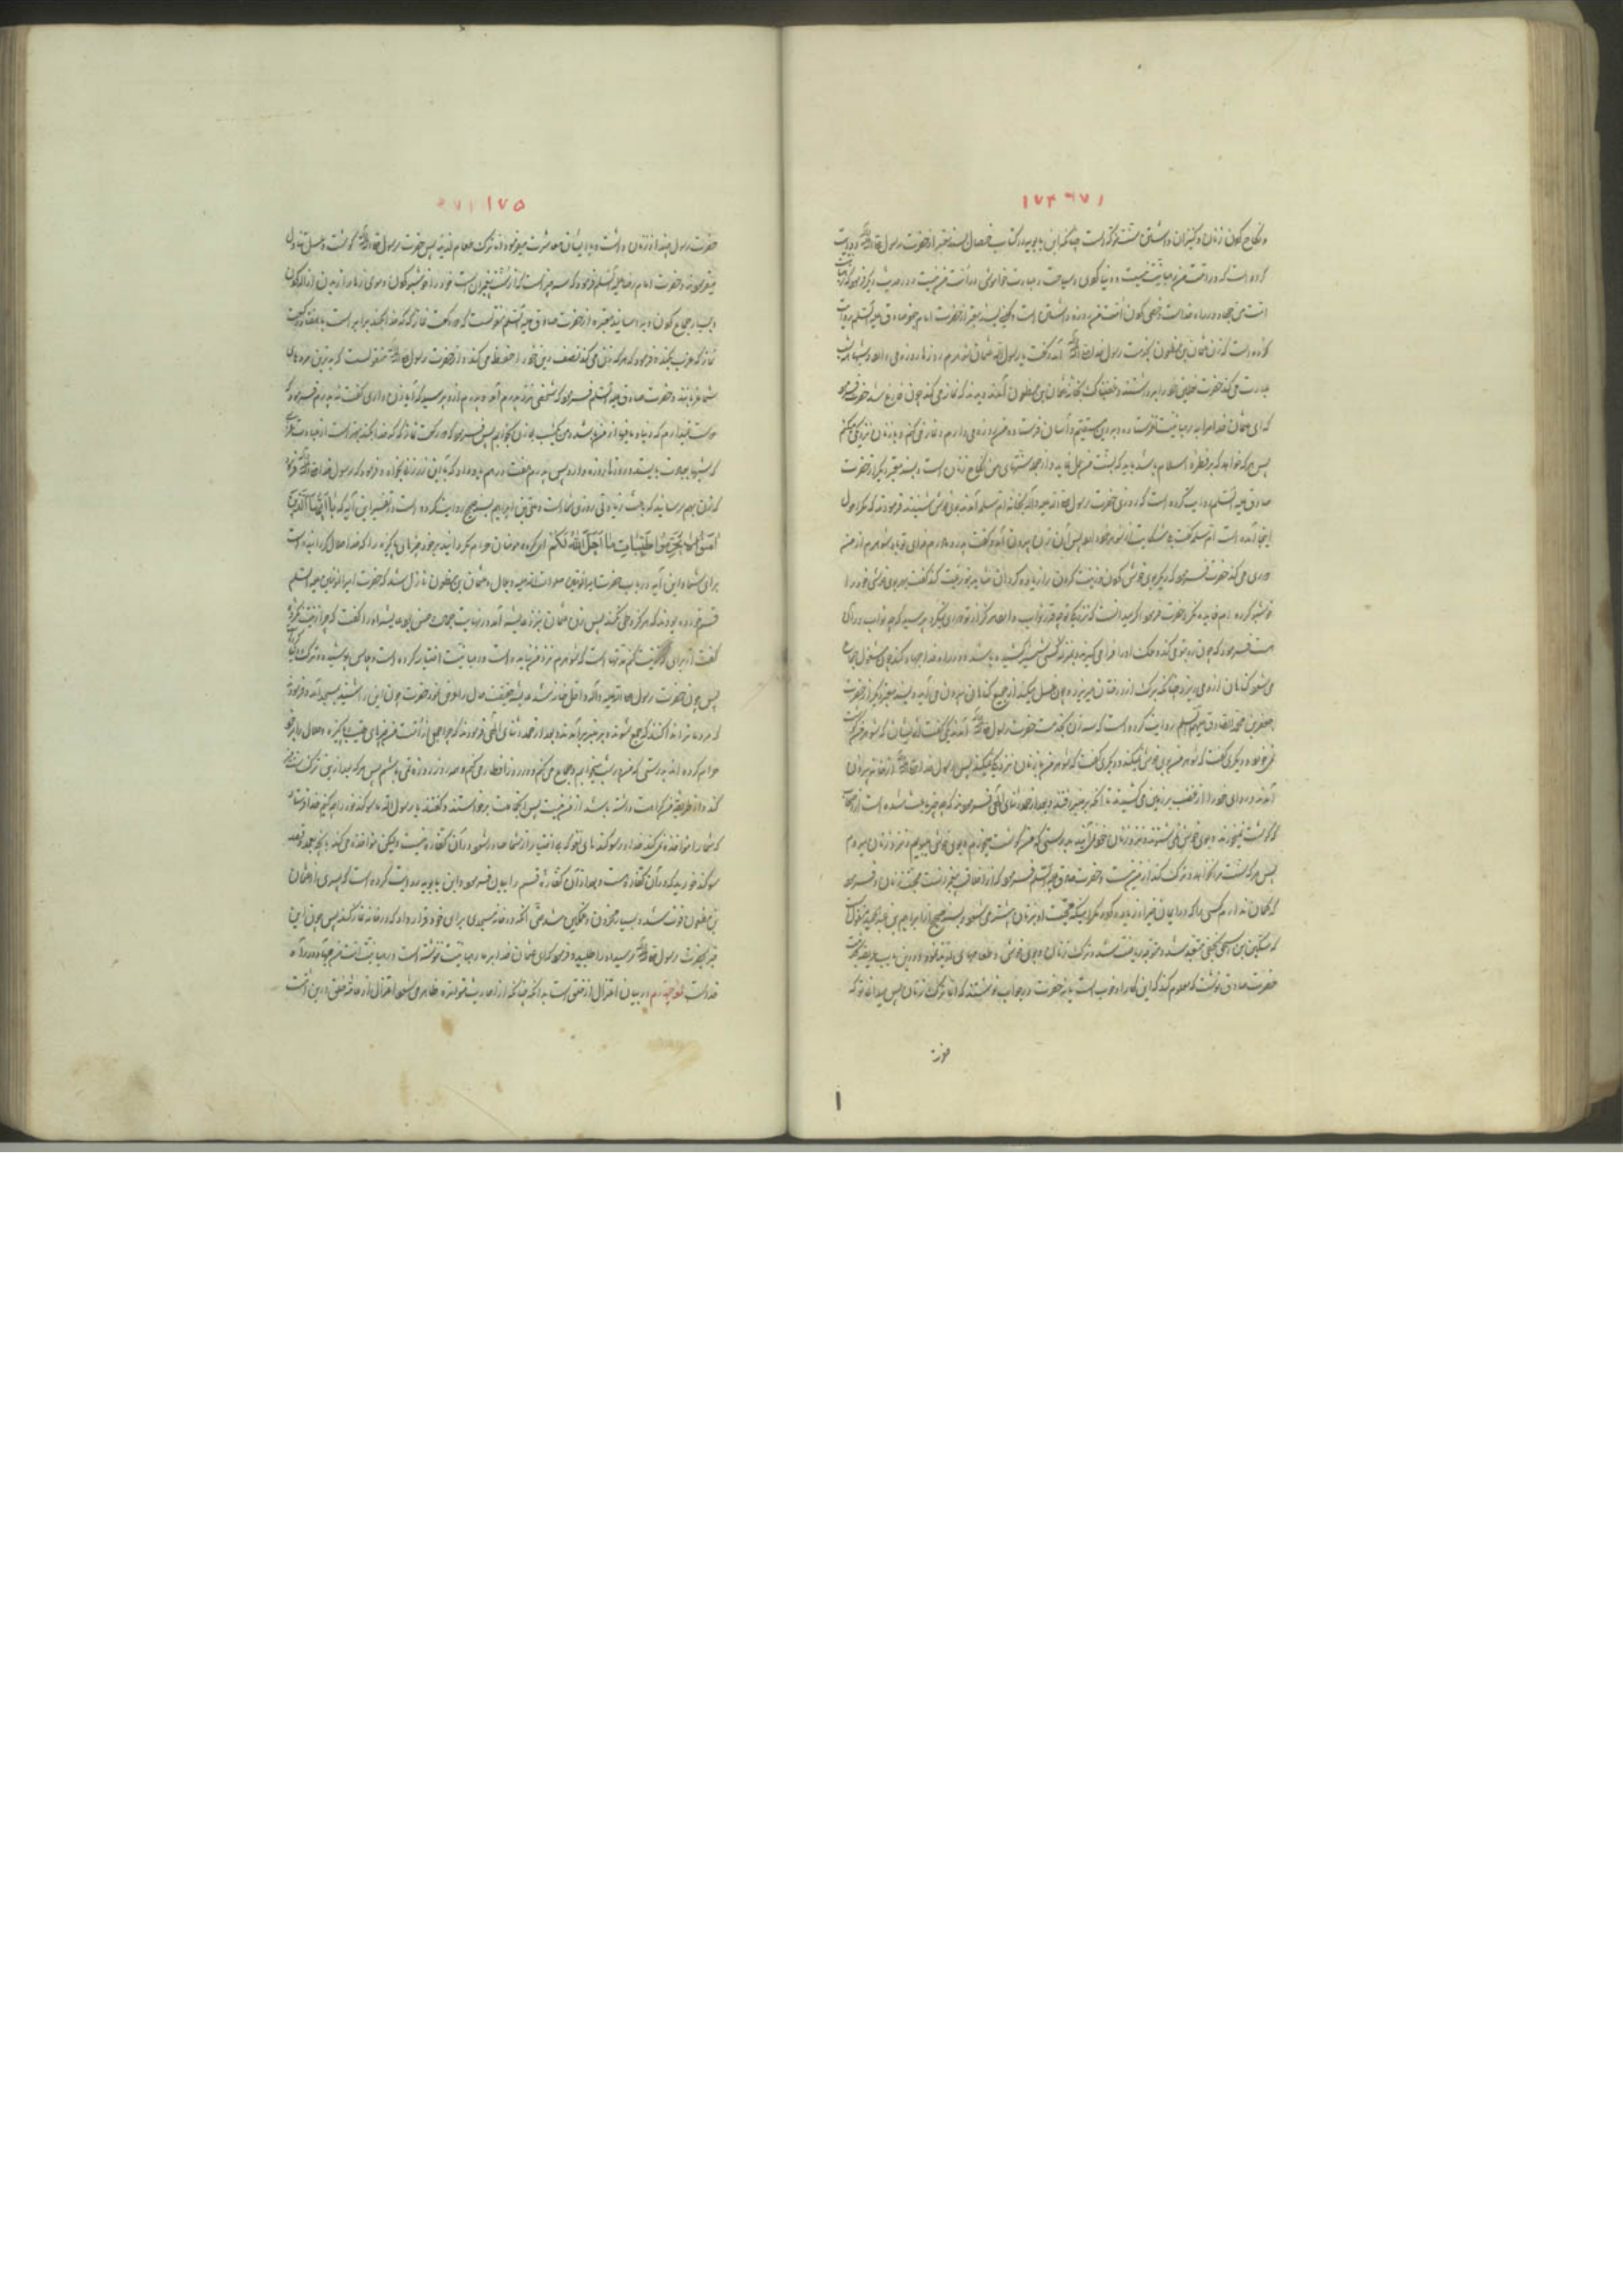 ۱۷۴ ۱۷۶
و نکاح کردن زنان و کنیزان داشتن سنت مؤکد است چنانکه ابن بابویه در کتاب خصال بسند معتبر از حضرت رسول روایت
کرده است که در امت من رهبانیت نیست و دنیا گردی و سیاحت و عبادت خاموشی در امت من نیست و در حدیث دیگر فرمود که رهبانیت
امت من جهاد در راه خداست و خصی کردن امت من روزه داشتن است و بسند معتبر از حضرت امام جعفر صادق علیه السلام روایت
کرده است که زن عثمان بن مظعون بخدمت رسول خدا آمد و گفت یا رسول الله عثمان شوهرم روزها روزه می دارد و شبها
عبادت می کند حضرت نعلین خود را برداشتند و غضبناک بخانه عثمان بن مظعون آمدند دیدند که نماز می کند چون فارغ شد حضرت فرمود
که ای عثمان خدا مرا به رهبانیت نفرستاده و بدین مستقیم و آسان فرستاده من روزه می دارم و نماز می کنم و با زنان نزدیکی میکنم
پس هر که خواهد که بر فطره اسلام باشد باید که بسنت من عمل نماید و از جمله سنتهای من نکاح زنان است و بسند معتبر دیگر از حضرت
صادق علیه السلام روایت کرده است که روزی حضرت رسول صلی الله علیه و آله بخانه ام سلمه آمدند بوی خوشی شنیدند فرمودند که مگر احول
اینجا آمده است ام سلمه گفت شکایت از شوهر خود دارد پس آن زن بیرون آمد و گفت پدر و مادرم فدای تو باد شوهرم از من
دوری می کند حضرت فرمود که دیگر بوی خوش کردن و زینت کردن را زیاده کن
خوشبو کرده ام حضرت فرمود اگر میدانست که نزدیکی تو چقدر ثواب دارد هرگز از تو دوری نمیکرد پرسید که چه ثواب دارد
حضرت فرمود که چون رو بتو می کند دو ملک او را فرا می گیرند و بمنزله کسی شمشیر کشیده باشد و در راه خدا جهاد کند و چون مشغول جماع
می شود گناهان از او می ریزد چنانکه برگ از درختان میریزد و چون غسل میکند از جمیع گناهان بیرون می آید و بسند معتبر دیگر از حضرت
جعفر بن محمد الصادق علیهم السلام روایت کرده است که سه زن بخدمت حضرت رسول آمدند یکی گفت از ایشان که شوهر من گوشت
نمی خورد و دیگری گفت که شوهر من بوی خوش نمیکند و دیگری گفت که شوهر من با زنان نزدیکی نمیکند پس رسول خدا از خانه بیرون
آمدند و ردای خود را از غضب بر زمین می کشیدند تا آنکه بر منبر رفتند و بعد از حمد و ثنای الهی فرمودند که چه چیز باعث شده است از صحابه
که گوشت نمیخورند و بوی خوش نمی شنوند و نزد زنان خود نمی آیند بدرستی که من گوشت میخورم و بوی خوش میبویم و نزد زنان میروم
پس هر که سنت مرا نخواهد و ترک کند از من نیست و حضرت صادق علیه السلام فرمود که از اخلاق پیغمبران است محبت زنان و فرمود
که گمان ندارم کسی را که در ایمان خیرا زیاده گردد مگر اینکه محبت او بزنان بیشتر می شود و بسند صحیح از ابراهیم بن عبد الحمید منقول است
که سکین بن اسحق نخعی متعبد شد و متوجه عبادت شده ترک زنان و بوی خوش و طعامهای لذیذ نمود و در این باب عریضه بخدمت
حضرت صادق نوشت که معلوم کند که این کارها خوب است یا نه حضرت در جواب نوشتند که اما ترک زنان پس میدانی تو که
حضرت
۱
۱۷۵
حضرت رسول چند از زنان داشت و با ایشان معاشرت میفرمود و اما ترک طعام لذیذ پس حضرت رسول گوشت و عسل تناول
میفرمودند و حضرت امام رضا علیه السلام فرمود که سه چیز است که از سنت پیغمبران است خود را خوشبو کردن و موی زیاد را از بدن ازاله کردن
و بسیار جماع کردن و به اسانید معتبره از حضرت صادق علیه السلام منقولست که دو رکعت نماز که کدخدا بکند برابر است با هفتاد رکعت
نماز که عزب بکند و فرمود که هر که زنی می کند نصف دین خود را حفظ می کند و از حضرت رسول منقولست که بدترین مرده های
شما عزبانند و حضرت صادق علیه السلام فرمود که شخصی نزد پدرم آمد و پدرم از او پرسید که آیا زن داری گفت نه پدرم فرمود که
دوست نمیدارم که دنیا و مافیها از من باشد و من یک شب بی زن بخوابم پس فرمود که دو رکعت نماز که کدخدا بکند بهتر است از عبادت عزبی
که شبها بعبادت بایستد و روزها روزه دارد پس پدرم هفت درهم باو داد و گفت باین زر زن بخواه و فرمود که رسول خدا فرمود
که زنان بهم رسانید که باعث زیادتی روزی شما است و علی بن ابراهیم بسند صحیح روایت کرده است در تفسیر این آیه که یَا أَیُّهَا الَّذِینَ
آمَنُوا لَا تُحَرِّمُوا طَیِّبَاتِ مَا أَحَلَّ اللَّهُ لَكُمْ ای گروه مومنان حرام مگردانید بر خود چیزهای پاکیزه را که خدا حلال گردانیده است
برای شما و این آیه در باب حضرت امیرالمومنین صلوات الله علیه و بلال و عثمان بن مظعون نازل شد که حضرت امیرالمومنین علیه السلام
قسم خورده بودند که هرگز وطی نکنند پس زن عثمان نزد عایشه آمد در نهایت جمال و حسن پس عایشه او را گفت که چرا زینت نکرده
گفت از برای که زینت کنم مدتها است که شوهرم نزد من نیامده است و رهبانیت اختیار کرده است و پلاس پوشیده و ترک دنیا کرده
پس چون حضرت رسول صلی الله علیه و آله داخل خانه شد عایشه حقیقت حال را عرض نمود حضرت چون این را شنید بمسجد آمد و فرمود
که مردمان را ندا کنند که جمع شوند و بر منبر برآمدند و بعد از حمد و ثنای الهی فرمودند که چرا جمعی از امت من چیزهای طیب و پاکیزه و حلال را بر خود
حرام کرده اند بدرستی که من در شب میخوابم و جماع می کنم و در روز افطار می کنم و همه روز روزه نمی باشم پس هر که بعد از این ترک سنت من
کند و از طریقه من کراهت داشته باشد از من نیست پس آنجماعت برخواستند و گفتند یا رسول الله ما سوگند خورده ایم چه کنیم خدا فرستاد
که شما را مؤاخذه نمی کند خدا در سوگندهای لغو که بی اختیار از شما صادر شود و در آن کفاره نیست ولیکن مؤاخذه می کند بآنچه بعمد و قصد
سوگند خورید که در آن کفاره هست و بعد از آن کفاره قسم را بیان فرمود و ابن بابویه روایت کرده است که پسری از عثمان
بن مظعون فوت شد و بسیار محزون و غمگین شد حتی آنکه در خانه مسجدی برای خود قرار داد که در خانه نماز کند پس چون این
خبر بحضرت رسول رسید او را طلبید و فرمود که ای عثمان خدا بر ما رهبانیت ننوشته است و رهبانیت امت من جهاد در راه
خداست لمعه چهارم در بیان اعتزال از خلق است بدانکه چنانکه از احادیث متواتره ظاهر می شود اعتزال از عامه خلق در این امت